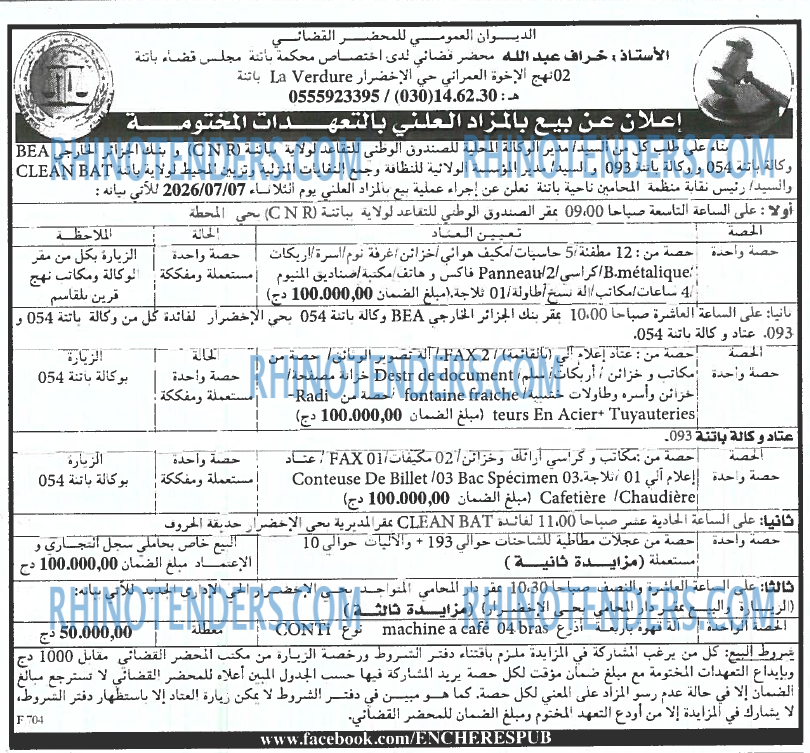 الديوان العمومي للمحضر القضائي
الأستاذ: خراف عبد الله محضر قضائي لدى اختصاص محكمة باتنة مجلس قضاء باتنة
02 نهج الإخوة العمراني حي الإخضرار La Verdure باتنة
هـ: 0555923395 / (030)14.62.30
إعلان عن بيع بالمزاد العلني بالتعهدات المختومة
بناء على طلب كل من السيد/ مدير الوكالة المحلية للصندوق الوطني للتقاعد لولاية بباتنة (C N R) و بنك الجزائر الخارجي BEA
وكالة باتنة 054 ووكالة باتنة 093 و السيد/ مدير المؤسسة الولائية للنظافة وجمع النفايات المنزلية وتزيين المحيط لولاية باتنة CLEAN BAT
والسيد/ رئيس نقابة منظمة المحامين ناحية باتنة نعلن عن إجراء عملية بيع بالمزاد العلني يوم الثلاثاء 2026/07/07 للآتي بيانه :
أولا: على الساعة التاسعة صباحا 09:00 بمقر الصندوق الوطني للتقاعد لولاية بباتنة (C N R) بحي المحطة
الحصة تعيين العتاد الحالة الملاحظة
حصة واحدة حصة من : 12 مطفئة/5 حاسبات/مكيف هوائي/خزائن/غرفة نوم/أسرة/أريكات حصة واحدة الزيارة بكل من مقر
/B.métalique/كراسي/Panneau/2 فاكس و هاتف/مكتبة/صناديق المنيوم مستعملة ومفككة الوكالة ومكاتب نهج
/4 ساعات/مكاتب/آلة نسخ/طاولة/01 ثلاجة.(مبلغ الضمان 100.000,00 دج) قرين بلقاسم
ثانيا: على الساعة العاشرة صباحا 10:00 بمقر بنك الجزائر الخارجي BEA وكالة باتنة 054 بحي الإخضرار لفائدة كل من وكالة باتنة 054 و
093. عتاد و كالة باتنة 054.
الحصة حصة من : عتاد إعلام آلي (بالقائمة) / FAX 2 / آلة تصوير الوثائق/ حصة من الحالة الزيارة
حصة واحدة مكاتب و خزائن / أريكات/ Destr de document/ خزانة مصفحة/ حصة واحدة بوكالة باتنة 054
خزائن وأسره وطاولات خشبية/ fontaine fraiche/ حصة من Radi- مستعملة ومفككة
teurs En Acier+ Tuyauteries (مبلغ الضمان 100.000,00 دج)
عتاد وكالة باتنة 093.
الحصة حصة من :مكاتب و كراسي أرائك وخزائن/ 02 مكيفات/FAX 01 / عتاد حصة واحدة الزيارة
حصة واحدة إعلام آلي 01 /ثلاجة.Conteuse De Billet /03 Bac Spécimen 03 مستعملة ومفككة بوكالة باتنة 054
Cafetière /Chaudière (مبلغ الضمان 100.000,00 دج)
ثانيا: على الساعة الحادية عشر صباحا 11:00 لفائدة CLEAN BAT بمقر المديرية بحي الإخضرار حديقة الحروف
حصة واحدة حصة من عجلات مطاطية للشاحنات حوالي 193 + والآليات حوالي 10 البيع خاص بحاملي سجل التجاري و
مستعملة (مزايدة ثانية) الإعتماد مبلغ الضمان 100.000,00 دج
ثالثا: على الساعة العاشرة والنصف صباحا 10:30 بمقر دار المحامي المتواجد بحي الإخضرار الحي الإداري الجديد للآتي بيانه:
(الزيارة والبيع بمقر دار المحامي بحي الإخضرار) (مزايدة ثالثة)
الحصة الواحدة آلة قهوة بأربعة أذرع machine a café 04 bras نوع CONTI معطلة 50.000,00 دج
شروط البيع: كل من يرغب المشاركة في المزايدة ملزم بأقتناء دفتر الشروط ورخصة الزيارة من مكتب المحضر القضائي مقابل 1000 دج
وبإيداع التعهدات المختومة مع مبلغ ضمان مؤقت لكل حصة يريد المشاركة فيها حسب الجدول المبين أعلاه للمحضر القضائي لا تسترجع مبالغ
الضمان إلا في حالة عدم رسو المزاد على المعني لكل حصة. كما هو مبين في دفتر الشروط لا يمكن زيارة العتاد إلا باستظهار دفتر الشروط،
لا يشارك في المزايدة إلا من أودع التعهد المختوم ومبلغ الضمان للمحضر القضائي.
F 704
www.facebook.com/ENCHERESPUB
RHINOTENDERS.COM
RHINOTENDERS.COM
RHINOTENDERS.COM
RHINOTENDERS.COM
RHINOTENDERS.COM